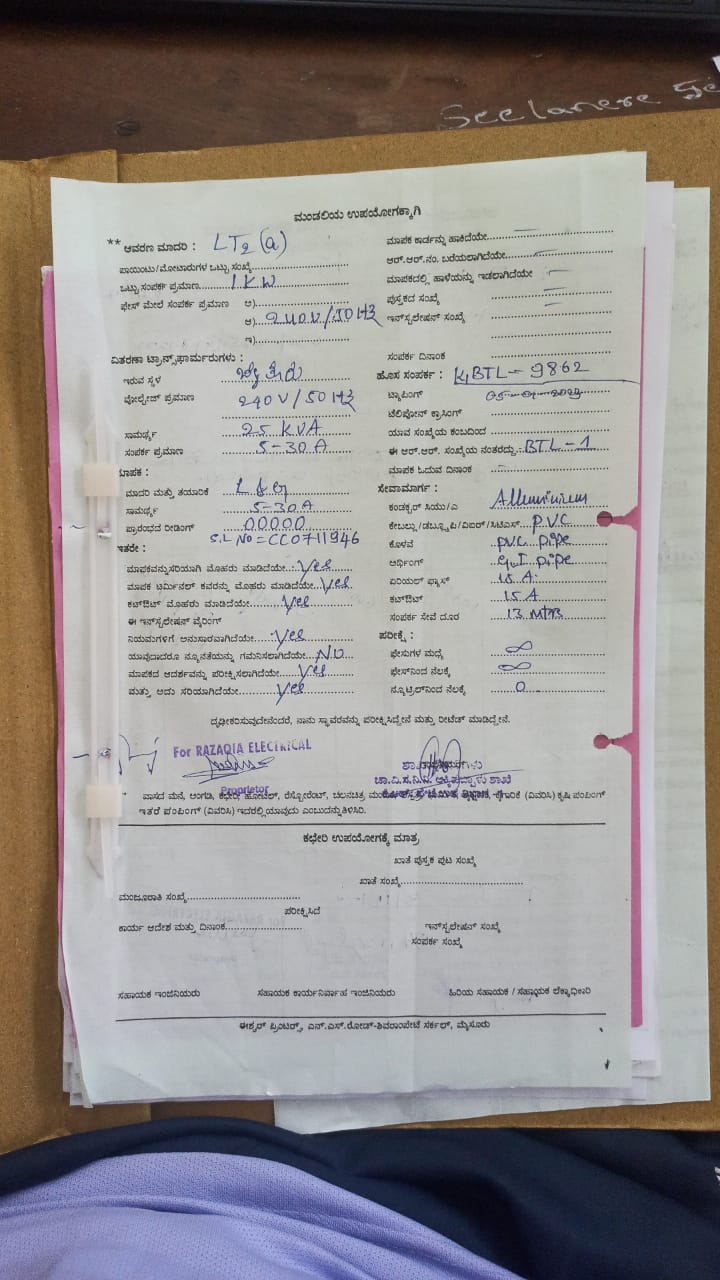 ಮಂಡಲಿಯ ಉಪಯೋಗಕ್ಕಾಗಿ
** ಆವರಣ ಮಾದರಿ : LT2 (a)
ಪಾಯಿಂಟು/ಮೋಟಾರುಗಳ ಒಟ್ಟು ಸಂಖ್ಯೆ
ಒಟ್ಟು ಸಂಪರ್ಕ ಪ್ರಮಾಣ 1 KW
ಫೇಸ್ ಮೇಲೆ ಸಂಪರ್ಕ ಪ್ರಮಾಣ ಅ)
ಆ) 240V/50HZ
ಇ)
ವಿತರಣಾ ಟ್ರಾನ್ಸ್‌ಫಾರ್ಮರುಗಳು :
ಇರುವ ಸ್ಥಳ
ವೋಲ್ಟೇಜ್ ಪ್ರಮಾಣ 240V/50HZ
ಸಾಮರ್ಥ್ಯ 25 KVA
ಸಂಪರ್ಕ ಪ್ರಮಾಣ 5-30A
ಮಾಪಕ :
ಮಾದರಿ ಮತ್ತು ತಯಾರಿಕೆ L&G
ಸಾಮರ್ಥ್ಯ 5-30A
ಪ್ರಾರಂಭದ ರೀಡಿಂಗ್ 00000
S.L No = CC0711946
ಇತರೇ :
ಮಾಪಕವನ್ನು ಸರಿಯಾಗಿ ಮೊಹರು ಮಾಡಿದೆಯೇ Yes
ಮಾಪಕ ಟರ್ಮಿನಲ್ ಕವರನ್ನು ಮೊಹರು ಮಾಡಿದೆಯೇ Yes
ಕಟ್‌ಔಟ್ ಮೊಹರು ಮಾಡಿದೆಯೇ Yes
ಈ ಇನ್‌ಸ್ಟಲೇಷನ್ ವೈರಿಂಗ್
ನಿಯಮಗಳಿಗೆ ಅನುಸಾರವಾಗಿದೆಯೇ Yes
ಯಾವುದಾದರೂ ನ್ಯೂನತೆಯನ್ನು ಗಮನಿಸಲಾಗಿದೆಯೇ NO
ಮಾಪಕದ ಆದರ್ಶವನ್ನು ಪರೀಕ್ಷಿಸಲಾಗಿದೆಯೇ Yes
ಮತ್ತು ಅದು ಸರಿಯಾಗಿದೆಯೇ Yes
ಮಾಪಕ ಕಾರ್ಡನ್ನು ಹಾಕಿದೆಯೇ
ಆರ್.ಆರ್.ನಂ. ಬರೆಯಲಾಗಿದೆಯೇ
ಮಾಪಕದಲ್ಲಿ ಹಾಳೆಯನ್ನು ಇಡಲಾಗಿದೆಯೇ
ಪುಸ್ತಕದ ಸಂಖ್ಯೆ
ಇನ್‌ಸ್ಟಲೇಷನ್ ಸಂಖ್ಯೆ
ಸಂಪರ್ಕ ದಿನಾಂಕ
ಹೊಸ ಸಂಪರ್ಕ : KBTL-9862
ಟ್ಯಾಪಿಂಗ್
ಟೆಲಿಫೋನ್ ಕ್ರಾಸಿಂಗ್
ಯಾವ ಸಂಖ್ಯೆಯ ಕಂಬದಿಂದ
ಈ ಆರ್.ಆರ್. ಸಂಖ್ಯೆಯ ನಂತರದ್ದು BTL-1
ಮಾಪಕ ಓದುವ ದಿನಾಂಕ -
ಸೇವಾಮಾರ್ಗ :
ಕಂಡಕ್ಟರ್ ಸಿಯು/ಎ Alluminium
ಕೇಬಲ್ಲು/ಡಬ್ಲ್ಯೂಪಿ/ವಿಐಆರ್/ಸಿಟಿಎಸ್ PVC
ಕೊಳವೆ PVC Pipe
ಅರ್ಥಿಂಗ್ G.I Pipe
ಏರಿಯಲ್ ಫ್ಯೂಸ್ 15 A.
ಕಟ್‌ಔಟ್ 15 A
ಸಂಪರ್ಕ ಸೇವೆ ದೂರ 13 Mtrs
ಪರೀಕ್ಷೆ :
ಫೇಸುಗಳ ಮಧ್ಯೆ ∞
ಫೇಸ್‌ನಿಂದ ನೆಲಕ್ಕೆ ∞
ನ್ಯೂಟ್ರಲ್‌ನಿಂದ ನೆಲಕ್ಕೆ 0
ದೃಢೀಕರಿಸುವುದೇನೆಂದರೆ, ನಾನು ಸ್ಥಾವರವನ್ನು ಪರೀಕ್ಷಿಸಿದ್ದೇನೆ ಮತ್ತು ರೀಟೆಡ್ ಮಾಡಿದ್ದೇನೆ.
For RAZAQIA ELECTRICAL
Proprietor
* ವಾಸದ ಮನೆ, ಅಂಗಡಿ, ಕಛೇರಿ, ಹೋಟೆಲ್, ರೆಸ್ಟೋರೆಂಟ್, ಚಲನಚಿತ್ರ (ವಿವರಿಸಿ) ಕೃಷಿ ಪಂಪಿಂಗ್
ಇತರೆ ಪಂಪಿಂಗ್ (ವಿವರಿಸಿ) ಇದರಲ್ಲಿ ಯಾವುದು ಎಂಬುದನ್ನು ತಿಳಿಸಿರಿ.
ಕಛೇರಿ ಉಪಯೋಗಕ್ಕೆ ಮಾತ್ರ
ಖಾತೆ ಪುಸ್ತಕ ಪುಟ ಸಂಖ್ಯೆ
ಖಾತೆ ಸಂಖ್ಯೆ
ಮಂಜೂರಾತಿ ಸಂಖ್ಯೆ
ಪರೀಕ್ಷಿಸಿದೆ
ಕಾರ್ಯ ಆದೇಶ ಮತ್ತು ದಿನಾಂಕ
ಇನ್‌ಸ್ಟಲೇಷನ್ ಸಂಖ್ಯೆ
ಸಂಪರ್ಕ ಸಂಖ್ಯೆ
ಸಹಾಯಕ ಇಂಜಿನಿಯರು ಸಹಾಯಕ ಕಾರ್ಯನಿರ್ವಾಹ ಇಂಜಿನಿಯರು ಹಿರಿಯ ಸಹಾಯಕ / ಸಹಾಯಕ ಲೆಕ್ಕಾಧಿಕಾರಿ
ಈಶ್ವರ್ ಪ್ರಿಂಟರ್ಸ್, ಎನ್.ಎಸ್.ರೋಡ್-ಶಿವರಾಂಪೇಟೆ ಸರ್ಕಲ್, ಮೈಸೂರು